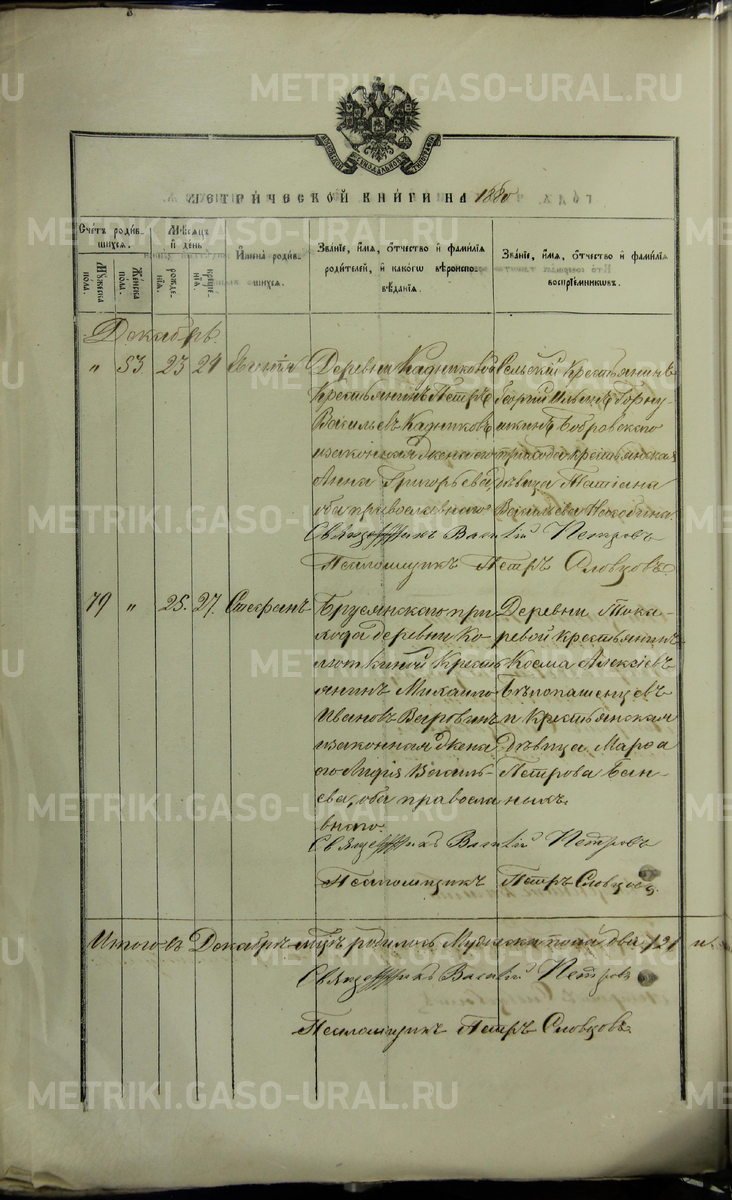 METRIKI.GASO-URAL.RU
МОСКОВСКОЙ СѴНОДАЛЬНОЙ ТИПОГРАФІИ
МЕТРИ́ЧЕСКОЙ КНИ́ГИ НА 1880
Счётъ роди́в-
шихся.
Мꙋжеска
по́ла.
Же́нска
по́ла.
Мѣ́сяцъ
и҆ день
рожде́-
нїѧ.
креще́-
нїѧ.
И҆мена̀ роди́в-
шихся.
Зва́нїе, и҆́мѧ, ѻ҆́тчество и҆ фами́лїѧ
роди́телей, и҆ како́гѡ вѣроиспо-
вѣ́данїѧ.
Зва́нїе, и҆́мѧ, ѻ҆́тчество и҆ фами́лїѧ
воспрїе́мникѡвъ.
Декабрь.
„ 53 23 24 Евгенія
Деревни Кадниковой
Крестьянинъ Петръ
Васильевъ Кадниковъ
и законная жена его
Анна Григорьева,
оба православнаго
Сельскій Крестьянинъ
Георгій
Бобровскаго
прихода крестьянская
дѣвица Татіана
Васильева
Священникъ Василій Петровъ
Псаломщикъ Петръ Словцовъ.
79 „ 25. 27. Стефанъ
Бруснянскаго при
хода деревни Ко
лоткиной Кресть
янинъ Михаилъ
Ивановъ
и законная жена
его Василь-
ева, оба правосла
внаго.
Деревни Тока-
ревой крестьянинъ
Косма Алексіевъ
Бѣлопашенцевъ
и Крестьянская
дѣвица Марѳа
Петрова
Священникъ Василій Петровъ
Псаломщикъ Петръ Словцовъ.
Итого въ Декабрѣ мцѣ родилось Мужеска пола
Священникъ Василій Петровъ
Псаломщикъ Петръ Словцовъ.